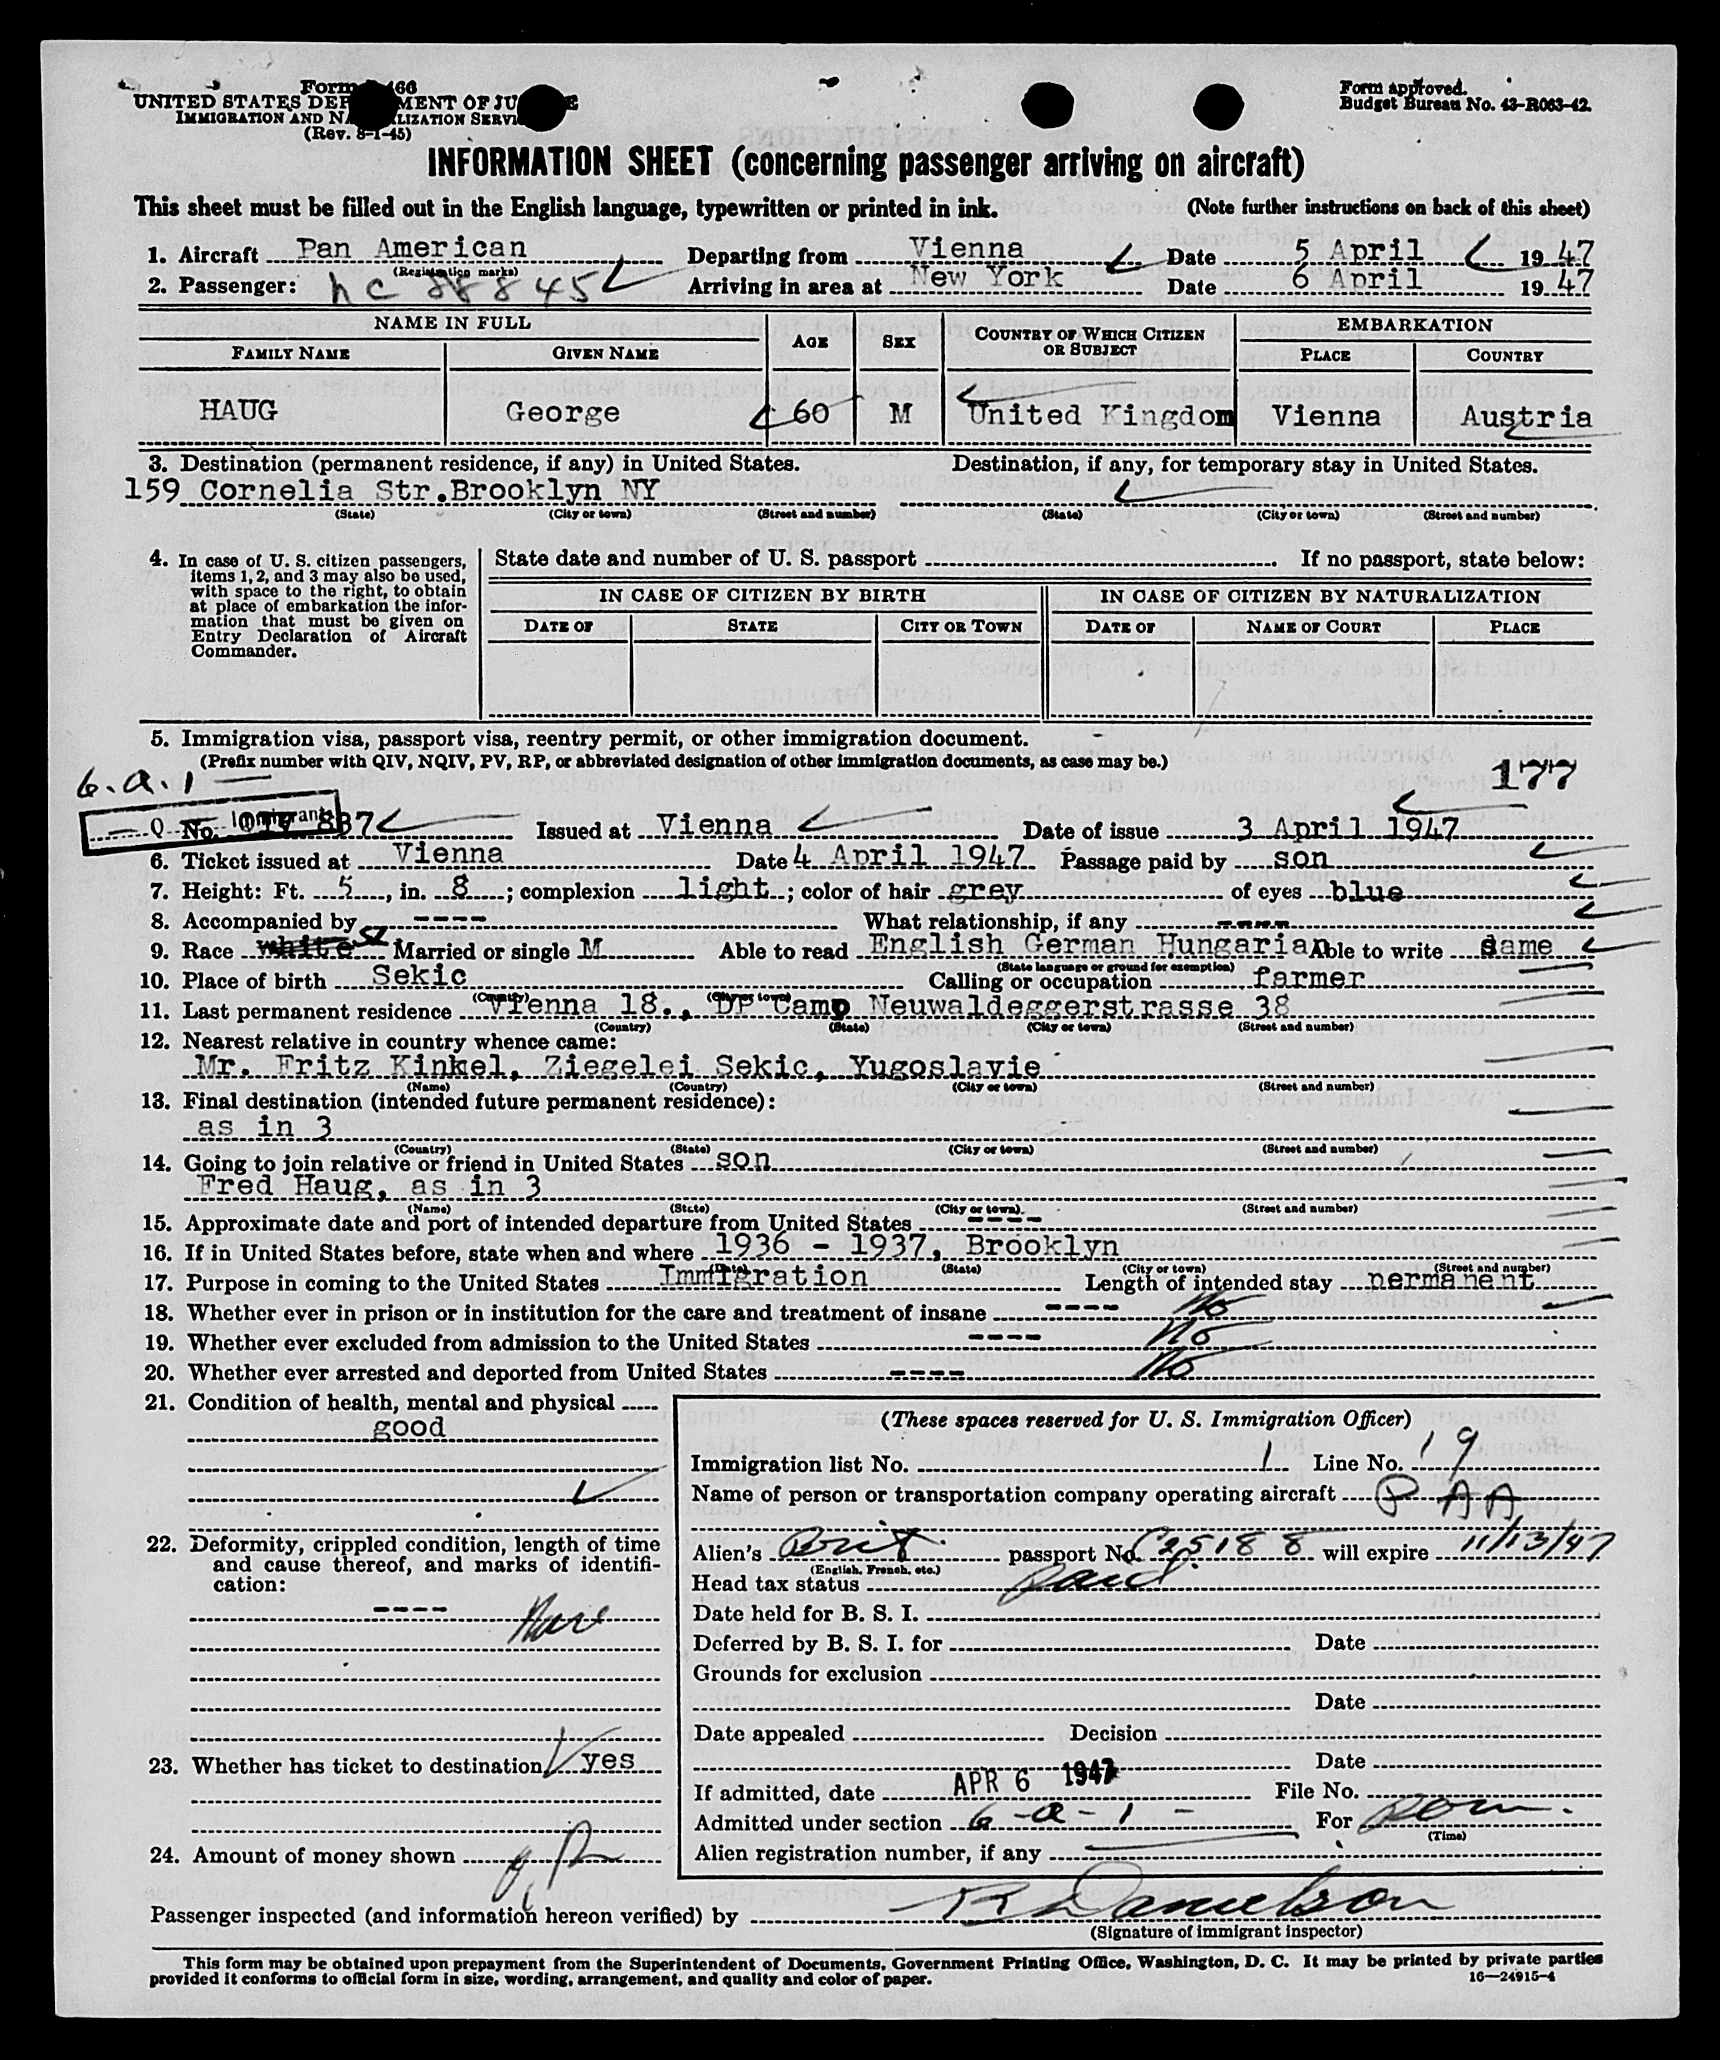 Form 466
UNITED STATES DEPARTMENT OF JUSTICE
IMMIGRATION AND NATURALIZATION SERVICE
(Rev. 8-1-45)
Form approved.
Budget Bureau No. 43-R063-42.
INFORMATION SHEET (concerning passenger arriving on aircraft)
This sheet must be filled out in the English language, typewritten or printed in ink. (Note further instructions on back of this sheet)
1. Aircraft Pan American Departing from Vienna Date 5 April 1947
(Registration marks)
2. Passenger: nc 88845 Arriving in area at New York Date 6 April 1947
NAME IN FULL AGE SEX COUNTRY OF WHICH CITIZEN OR SUBJECT EMBARKATION
FAMILY NAME GIVEN NAME PLACE COUNTRY
HAUG George 60 M United Kingdom Vienna Austria
3. Destination (permanent residence, if any) in United States. Destination, if any, for temporary stay in United States.
159 Cornelia Str.Brooklyn NY
(State) (City or town) (Street and number) (State) (City or town) (Street and number)
4. In case of U. S. citizen passengers, items 1, 2, and 3 may also be used, with space to the right, to obtain at place of embarkation the information that must be given on Entry Declaration of Aircraft Commander.
State date and number of U. S. passport If no passport, state below:
IN CASE OF CITIZEN BY BIRTH IN CASE OF CITIZEN BY NATURALIZATION
DATE OF STATE CITY OR TOWN DATE OF NAME OF COURT PLACE
5. Immigration visa, passport visa, reentry permit, or other immigration document.
(Prefix number with QIV, NQIV, PV, RP, or abbreviated designation of other immigration documents, as case may be.)
177
6.a.1 —
Q Immigrant
No. 887 Issued at Vienna Date of issue 3 April 1947
6. Ticket issued at Vienna Date 4 April 1947 Passage paid by son
7. Height: Ft. 5, in. 8; complexion light; color of hair grey of eyes blue
8. Accompanied by ---- What relationship, if any ----
9. Race white Married or single M Able to read English German Hungarian Able to write same
(State language or ground for exemption)
10. Place of birth Sekic Calling or occupation farmer
(Country) (City or town)
11. Last permanent residence Vienna 18., DP Camp Neuwaldeggerstrasse 38
(Country) (State) (City or town) (Street and number)
12. Nearest relative in country whence came:
Mr. Fritz Kinkel, Ziegelei Sekic, Yugoslavie
(Name) (Country) (City or town) (Street and number)
13. Final destination (intended future permanent residence):
as in 3
(Country) (State) (City or town) (Street and number)
14. Going to join relative or friend in United States son
Fred Haug, as in 3
(Name) (State) (City or town) (Street and number)
15. Approximate date and port of intended departure from United States ----
16. If in United States before, state when and where 1936 - 1937, Brooklyn
(Date) (State) (City or town) (Street and number)
17. Purpose in coming to the United States Immigration Length of intended stay permanent
18. Whether ever in prison or in institution for the care and treatment of insane ---- No
19. Whether ever excluded from admission to the United States ---- No
20. Whether ever arrested and deported from United States ---- No
21. Condition of health, mental and physical
good
22. Deformity, crippled condition, length of time and cause thereof, and marks of identification:
----
23. Whether has ticket to destination yes
24. Amount of money shown
(These spaces reserved for U. S. Immigration Officer)
Immigration list No. 1 Line No. 19
Name of person or transportation company operating aircraft PAA
Alien's Brit. passport No. C25188 will expire 11/13/47
(English, French, etc.)
Head tax status paid
Date held for B. S. I.
Deferred by B. S. I. for Date
Grounds for exclusion
Date
Date appealed Decision
Date
If admitted, date APR 6 1947 File No.
Admitted under section 6-a-1- For
(Time)
Alien registration number, if any
Passenger inspected (and information hereon verified) by R Danielson
(Signature of immigrant inspector)
This form may be obtained upon prepayment from the Superintendent of Documents, Government Printing Office, Washington, D. C. It may be printed by private parties
provided it conforms to official form in size, wording, arrangement, and quality and color of paper.
16—24915-4